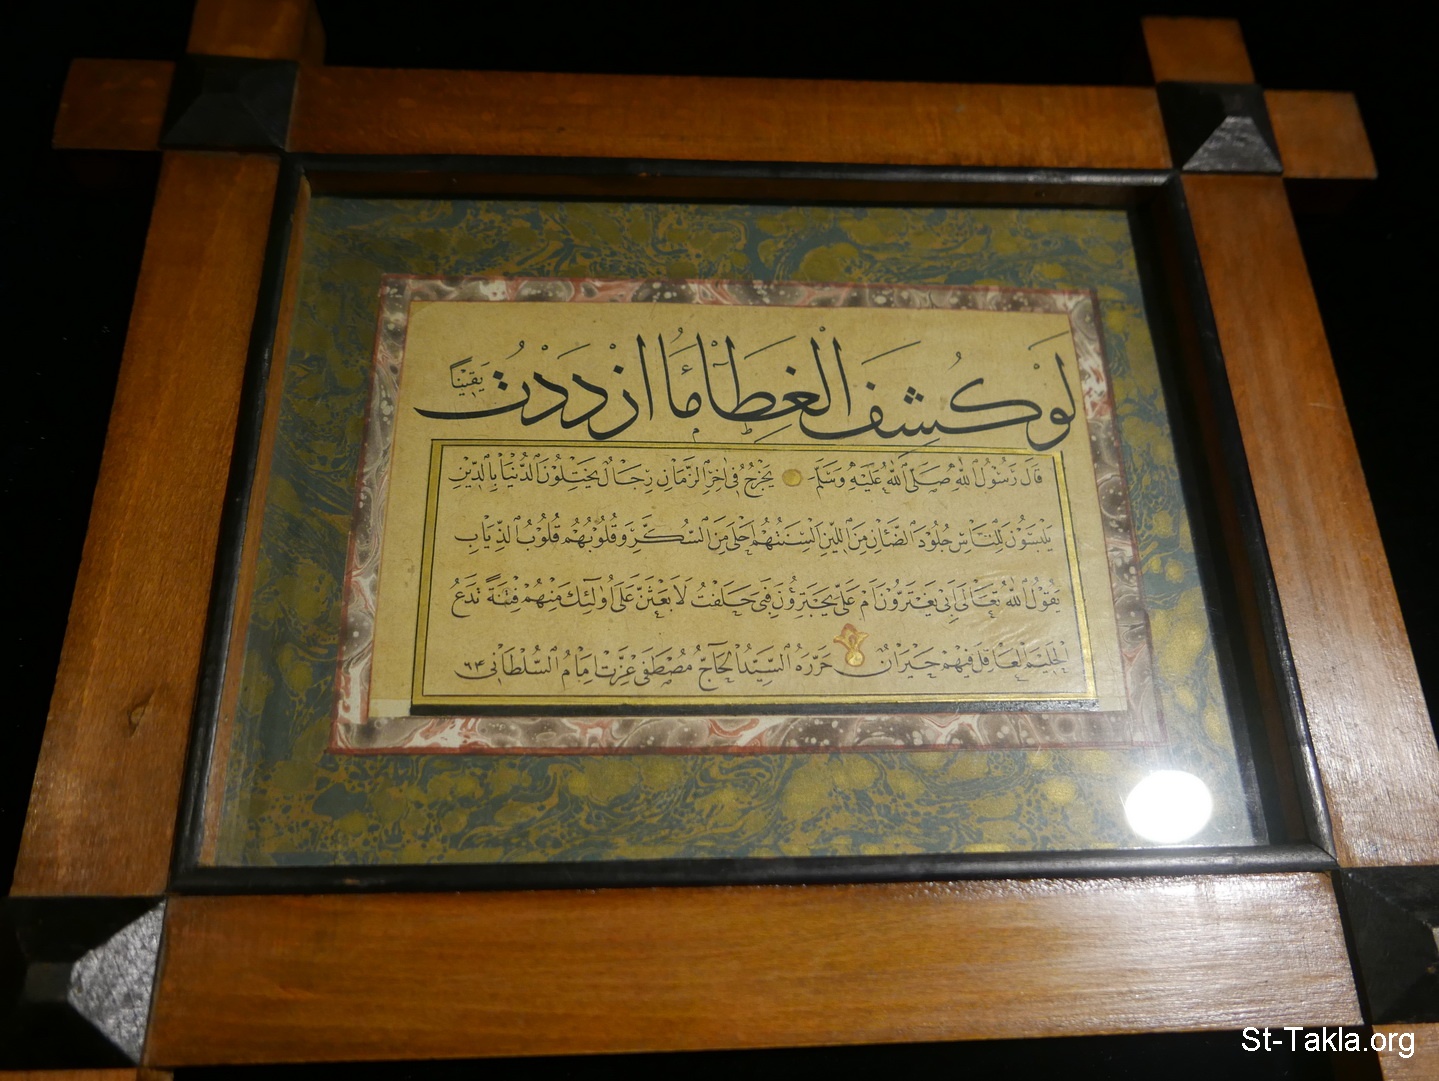 لَوْ كُشِفَ الْغِطَاءُ مَا ازْدَدْتُ يَقِينًا
قَالَ رَسُولُ اللهِ صَلَّى اللهُ عَلَيْهِ وَسَلَّمَ يَخْرُجُ فِي اٰخِرِ الزَّمَانِ رِجَالٌ يَخْتِلُونَ الدُّنْيَا بِالدِّينِ
يَلْبَسُونَ لِلنَّاسِ جُلُودَ الضَّأْنِ مِنَ اللِّينِ اَلْسِنَتُهُمْ اَحْلَى مِنَ السُّكَّرِ وَقُلُوبُهُمْ قُلُوبُ الذِّيَابِ
يَقُولُ اللهُ تَعَالَى اَبِي يَغْتَرُّونَ اَمْ عَلَيَّ يَجْتَرِؤُنَ فَبِي حَلَفْتُ لَاَبْعَثَنَّ عَلَى اُولٰئِكَ مِنْهُمْ فِتْنَةً تَدَعُ
الْحَلِيمَ الْعَاقِلَ فِيهِمْ حَيْرَانَ حَرَّرَهُ السَّيِّدُ الْحَاجُّ مُصْطَفَى عِزَّتْ اِمَامُ السُّلْطَانِي ٦٤
St-Takla.org